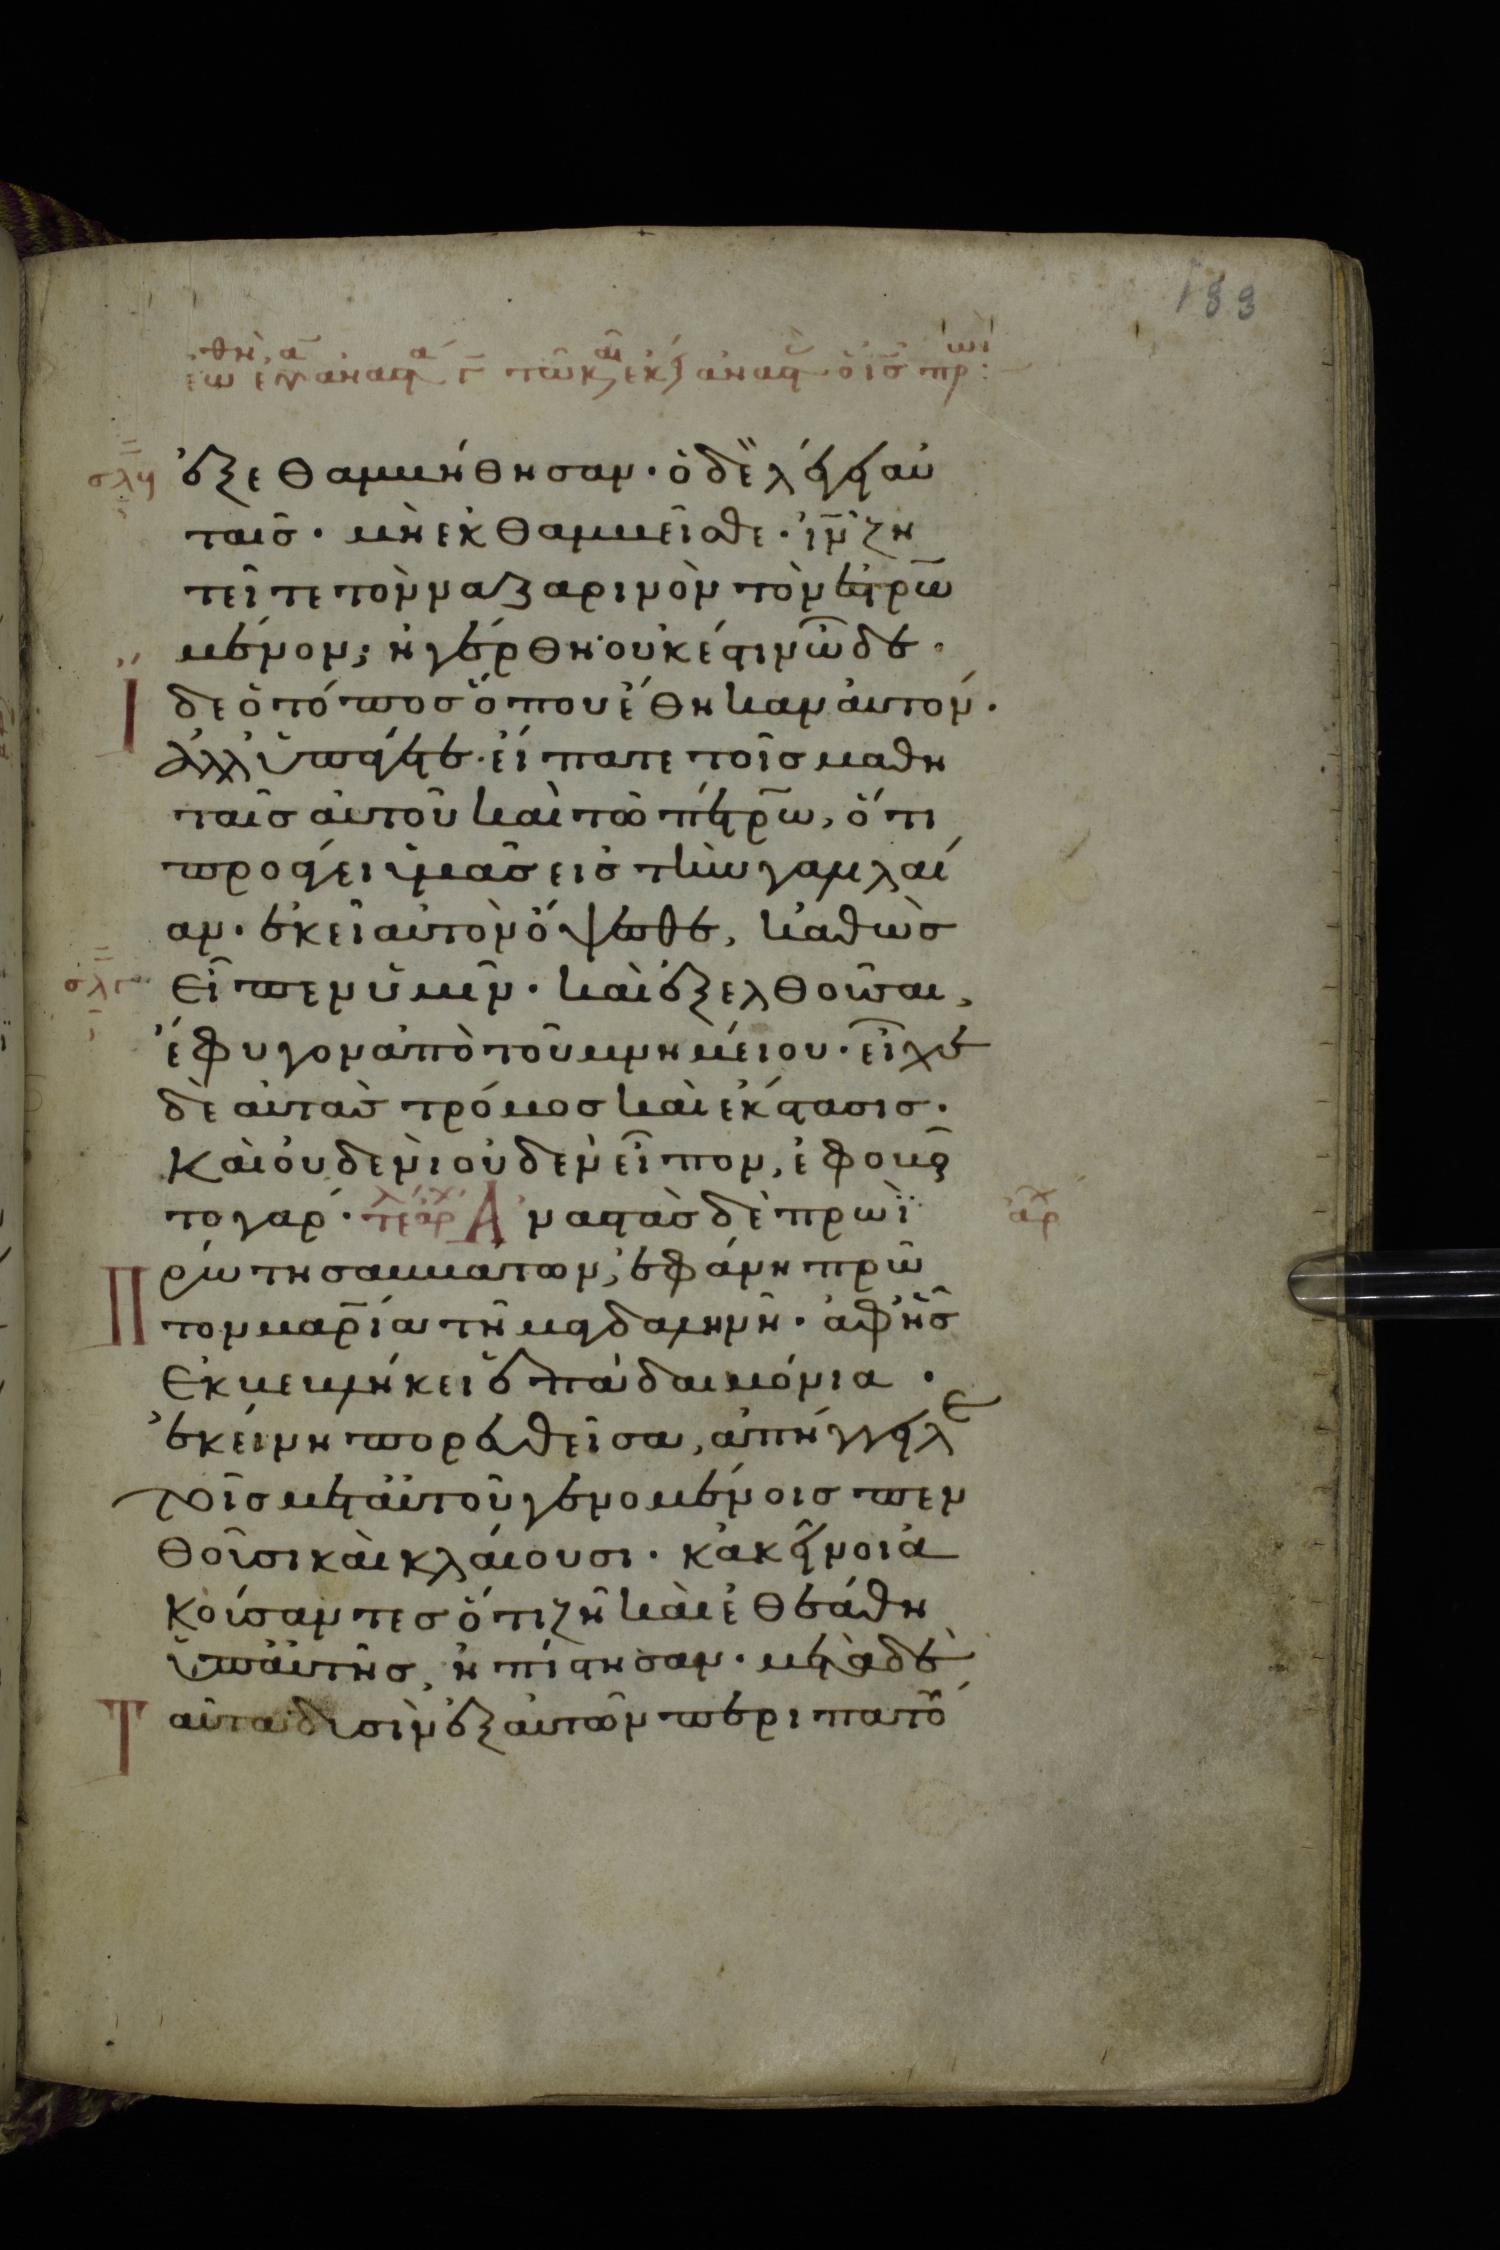 133
ἐξεθαμβήθησαν· ὁ δὲ λέγει αὐ
ταῖς· μὴ ἐκθαμβεῖσθε· ἰν̄ ζη
τεῖτε τὸν ναζαρινὸν τὸν ἐσταυρω
μένον; ἠγέρθη· οὐκ ἔστιν ὧδε·
Ἴδε ὁ τόπος ὅπου ἔθηκαν αὐτόν·
ἀλλ' ὑπάγετε· εἴπατε τοῖς μαθη
ταῖς αὐτοῦ καὶ τῶ πέτρω, ὅτι
προάγει ὑμᾶς εἰς τὴν γαλιλαί
αν· ἐκεῖ αὐτὸν ὄψεσθε, καθὼς
σλγ εἶπεν ὑμῖν· καὶ ἐξελθοῦσαι,
ἔφυγον ἀπὸ τοῦ μνημείου· εἶχε
δὲ αὐτὰς τρόμος καὶ ἔκστασις·
Καὶ οὐδενὶ οὐδὲν εἶπον, ἐφοβοῦν
το γάρ· Ἀναστὰς δὲ πρωῒ
Πρώτη σαββάτων, ἐφάνη πρῶ
τον μαρία τῆ μαγδαληνῆ· ἀφ' ἧς
ἐκβεβλήκει ἑπτὰ δαιμόνια·
ἐκείνη πορευθεῖσα, ἀπήγγειλε
τοῖς μετ' αὐτοῦ γενομένοις πεν
θοῦσι καὶ κλαίουσι· κἀκεῖνοι ἀ
κούσαντες ὅτι ζῆ καὶ ἐθεάθη
ὑπ' αὐτῆς, ἠπίστησαν· μετὰ δὲ
Ταῦτα δυσὶν ἐξ αὐτῶν περιπατοῦ